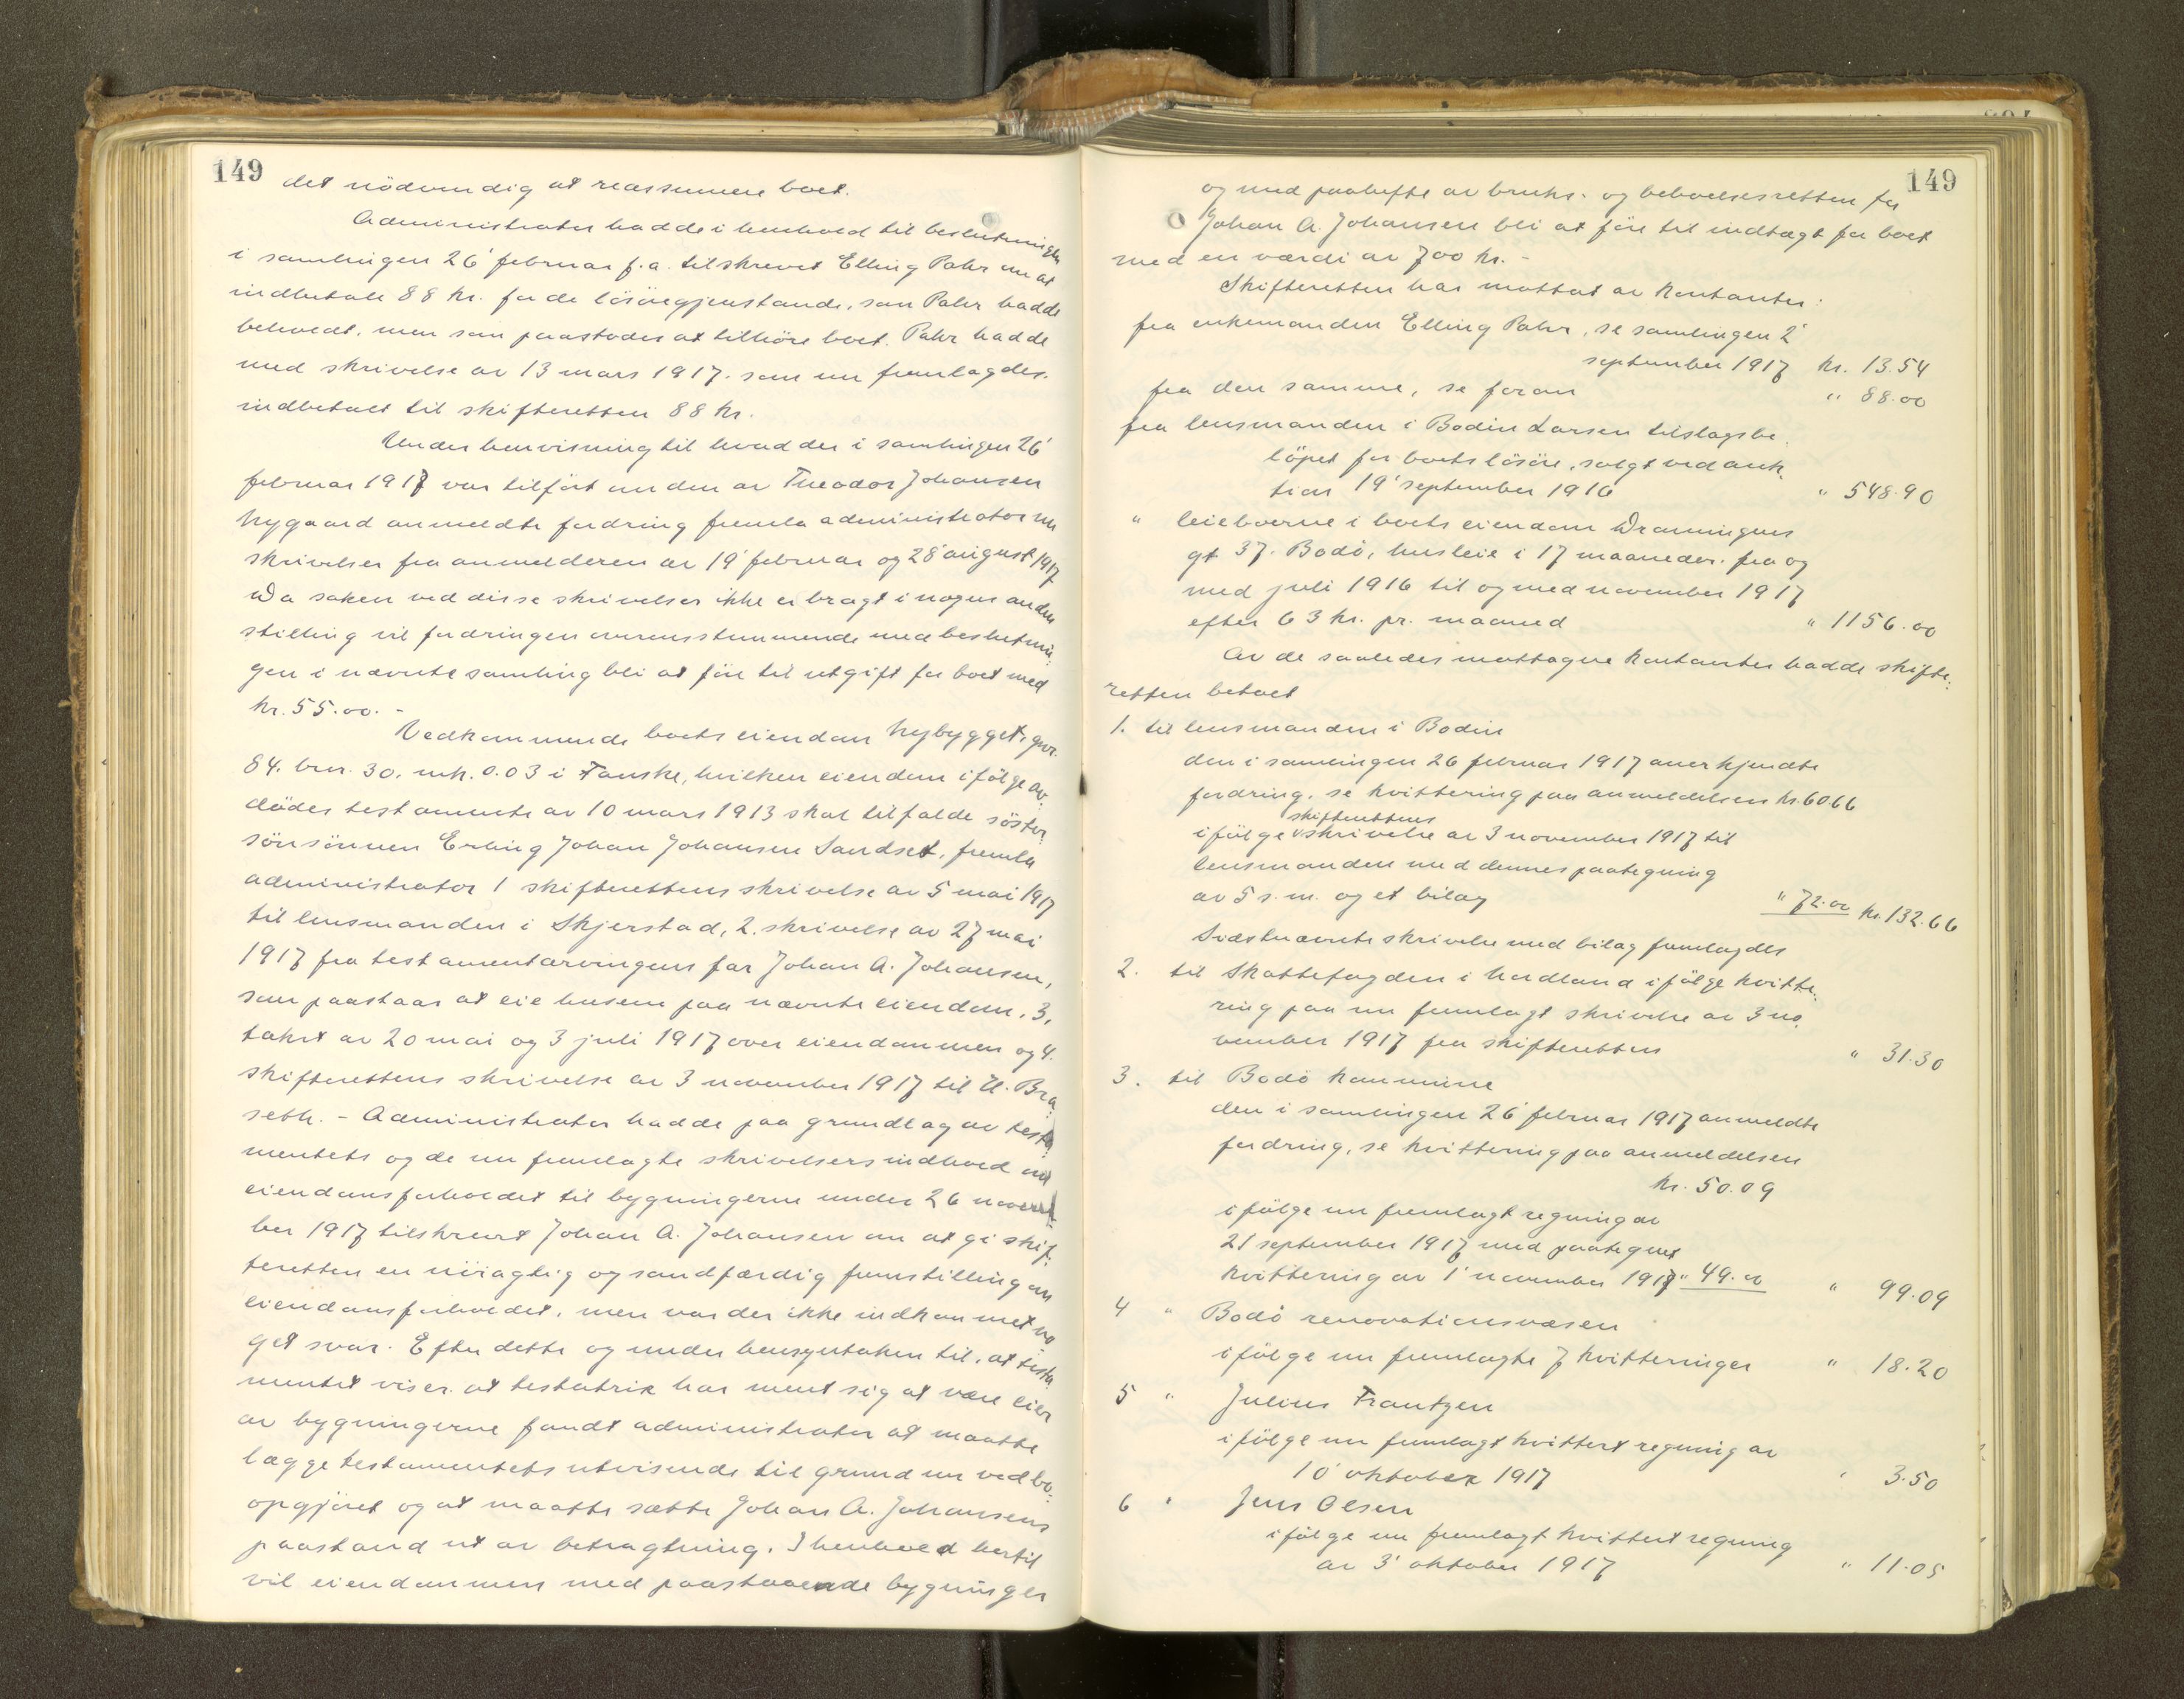 149
det nödvendig at reassumere boet.
Administrator hadde i henhold til beslutningen
i samlingen 26' februar f.a. tilskrevet Elling Pahr om at
indbetale 88 kr. for de lösöregjenstande, som Pahr hadde
beholdt, men som paastodes at tilhöre boet. Pahr hadde
med skrivelse av 13 mars 1917. som nu fremlagdes.
indbetalt til skifteretten 88 kr.
Under henvisning til hvad der i samlingen 26'
februar 1917 var tilfört om den av Theodor Johansen
Nygaard anmeldte fordring fremla administrator nu
skrivelser fra anmelderen av 19' februar og 28' august 1917
Da saken ved disse skrivelser ikke er bragt i nogen anden
stilling vil fordringen overensstemmende med beslutnin-
gen i nævnte samling bli at före til utgift for boet med
kr. 55.00. -
Vedkommende boets eiendom Nybygget, gnr.
84. bnr. 30. mk. 0.03 i Fauske, hvilken eiendom ifölge av-
dödes testamente av 10 mars 1913 skal tilfalde söster-
sönsönnen Erling Johan Johansen Sandset, fremla
administrator 1 skifterettens skrivelse av 5 mai 1917
til lensmanden i Skjerstad, 2. skrivelse av 27 mai
1917 fra testamentarvingens far Johan A. Johansen,
som paastaar at eie husene paa nævnte eiendom, 3,
takst av 20 mai og 3 juli 1917 over eiendommen og 4.
skifterettens skrivelse av 3 november 1917 til H. Bra-
seth. - Administrator hadde paa grundlag av testa-
mentets og de nu fremlagte skrivelsers indhold om
eiendomsforholdet til bygningerne under 26 novem-
ber 1917 tilskrevet Johan A. Johansen om at gi skif-
teretten en nöiagtig og sandfærdig fremstilling om
eiendomsforholdet, men var der ikke indkommet no-
get svar. Efter dette og under hensyntaken til, at testa-
mentet viser at testatrix har ment sig at være eier
av bygningerne fandt administrator at maatte
lægge testamentets utvisende til grund nu ved bo-
opgjöret og at maatte sætte Johan A. Johansens
paastand ut av betragtning. I henhold hertil
vil eiendommen med paastaaende bygninger
149
og med paahefte av bruks- og beboelsesretten for
Johan A. Johansen bli at före til indtægt for boet
med en værdi av 700 kr. -
Skifteretten har mottat av kontanter:
fra enkemanden Elling Pahr, se samlingen 2'
september 1917 kr. 13.54
fra den samme, se foran " 88.00
fra lensmanden i Bodin Larsen tilslagsbe-
löpet for boets lösöre, solgt ved auk-
tion 19' september 1916 " 548.90
" leieboerne i boets eiendom Dronningens
gt 37. Bodö, husleie i 17 maaneder. fra og
med juli 1916 til og med november 1917
efter 63 kr. pr. maaned " 1156.00
Av de saaledes mottagne kontanter hadde skifte-
retten betalt
1. til lensmanden i Bodin
den i samlingen 26 februar 1917 anerkjendte
fordring, se kvittering paa anmeldelsen kr. 60.66
skifterettens
ifölge v skrivelse av 3 november 1917 til
lensmanden med dennes paategning
av 5 s.m. og et bilag " 72.00 kr. 132.66
Sidstnævnte skrivelse med bilag fremlagdes
2. til Skattefogden i Nordland ifölge kvitte-
ring paa nu fremlagt skrivelse av 3 no-
vember 1917 fra skifteretten " 31.30
3. til Bodö kommune
den i samlingen 26' februar 1917 anmeldte
fordring, se kvittering paa anmeldelsen
kr. 50.09
ifölge nu fremlagt regning av
21 september 1917 med paategnet
kvittering av 1' november 1917 " 49.00 " 99.09
4 " Bodö renovationsvæsen
ifölge nu fremlagte 7 kvitteringer " 18.20
5 " Julius Frantzen
ifölge nu fremlagt kvittert regning av
10' oktober 1917 " 3.50
6 " Jens Olsen
ifölge nu fremlagt kvittert regning
av 3' oktober 1917 " 11.05